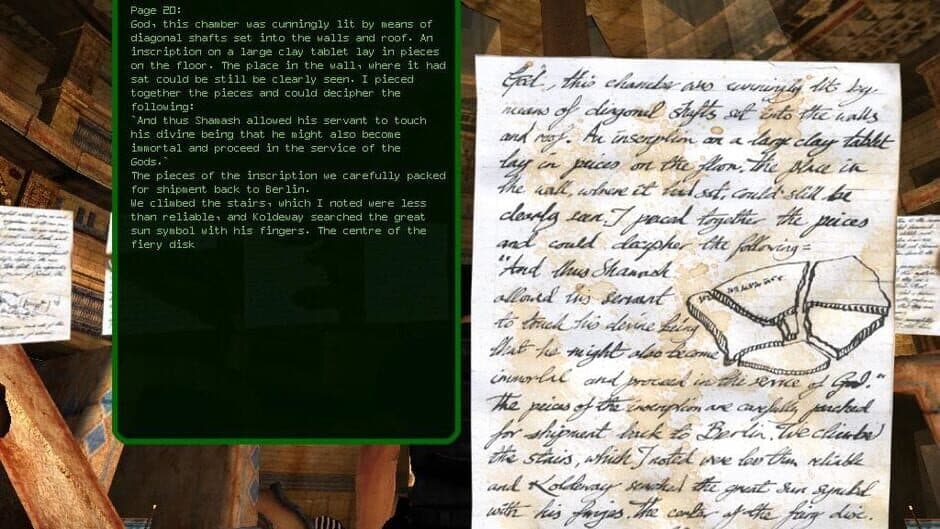 Page 20:
God, this chamber was cunningly lit by means of
diagonal shafts set into the walls and roof. An
inscription on a large clay tablet lay in pieces
on the floor. The place in the wall, where it had
sat could be still be clearly seen. I pieced
together the pieces and could decipher the
following:
`And thus Shamash allowed his servant to touch
his divine being that he might also become
immortal and proceed in the service of the
Gods.`
The pieces of the inscription we carefully packed
for shipment back to Berlin.
We climbed the stairs, which I noted were less
than reliable, and Koldeway searched the great
sun symbol with his fingers. The centre of the
fiery disk
God, this chamber was cunningly lit by
means of diagonal shafts set into the walls
and roof. An inscription on a large clay tablet
lay in pieces on the floor. The place in
the wall, where it had set, could still be
clearly seen. I pieced together the pieces
and could decipher the following:
"And thus Shamash
allowed his servant
to touch his divine being
that he might also become
immortal and proceed in the service of God."
The pieces of the inscription are carefully packed
for shipment back to Berlin. We climbed
the stairs, which I noted were less than reliable
and Koldeway searched the great sun symbol
with his fingers. The center of the fiery disc.